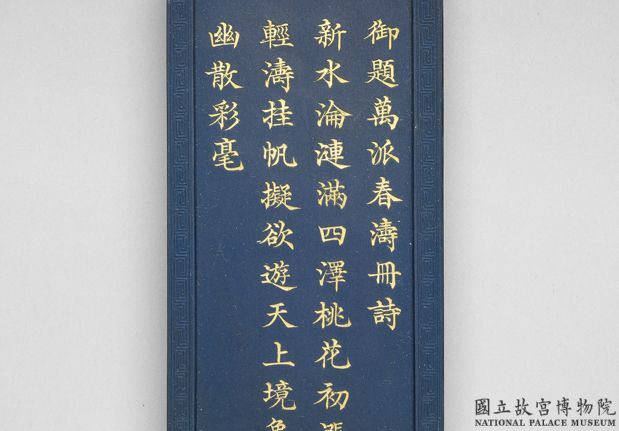 御題萬派春濤冊詩
新水淪漣滿四澤桃花初
輕濤挂帆擬欲遊天上境
幽散彩毫
國立故宮博物院
NATIONAL PALACE MUSEUM